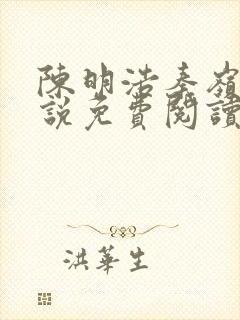 陳明浩秦嶺
說免費閱讀
洪華生